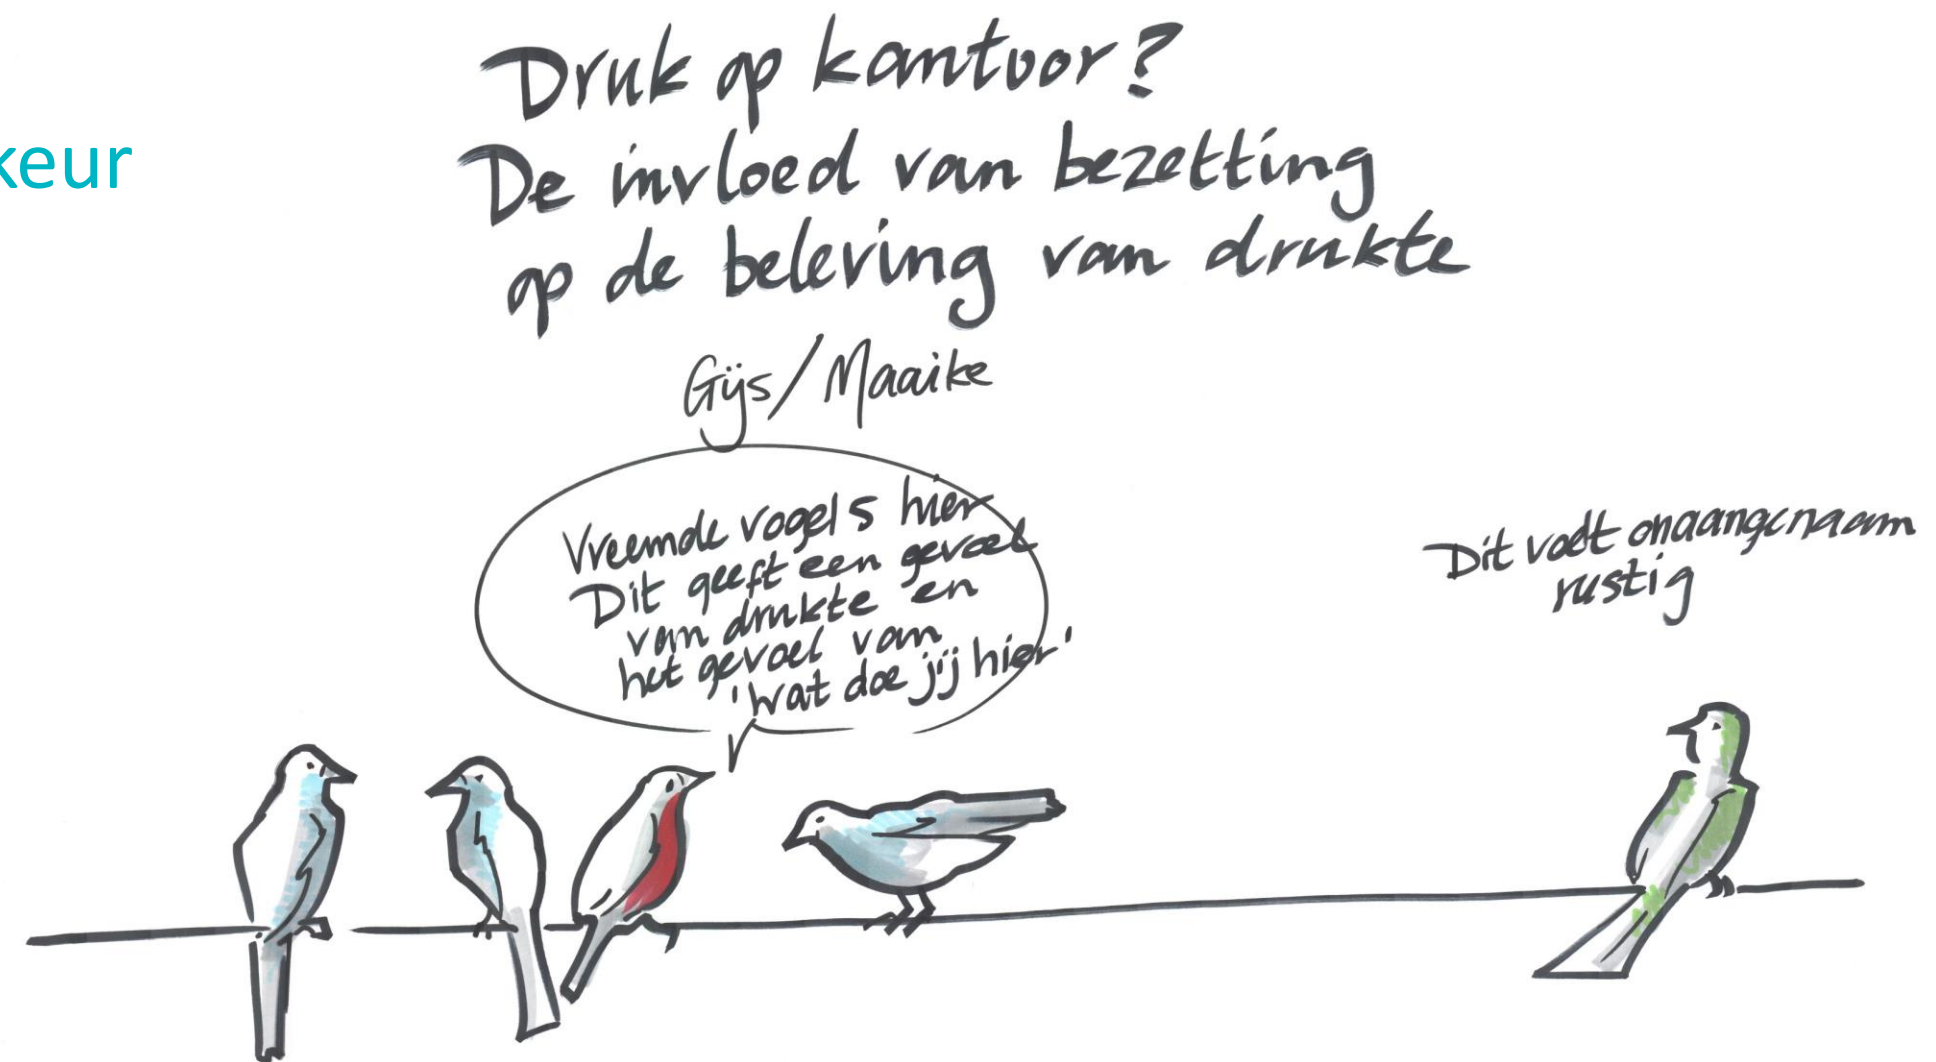 keur
Druk op kantoor?
De invloed van bezetting
op de beleving van drukte
Gijs/Maaike
Vreemde vogels hier
Dit geeft een gevoel
van drukte en
het gevoel van
'wat doe jij hier'
Dit voelt onaangenaam
rustig